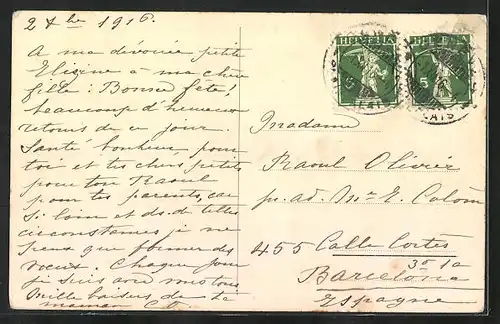 2 xbre 1916.
A ma dévouée petite
Elisine à ma chère
fille : Bonne fête !
beaucoup d'heureux
retours de ce jour.
Santé bonheur pour
toi et tes chers petits
pour ton Raoul
pour tes parents, car
si loin et ds. de telles
circonstances je ne
peux que former des
vœux. Chaque jour
je suis avec vous tous
Mille baisers de ta
maman
HELVETIA
5
HELVETIA
5
Madame
Raoul Olivier
p. ad. Mr. E. Colom
455 Calle Cortes
3º 1a
Barcelona
Espagne